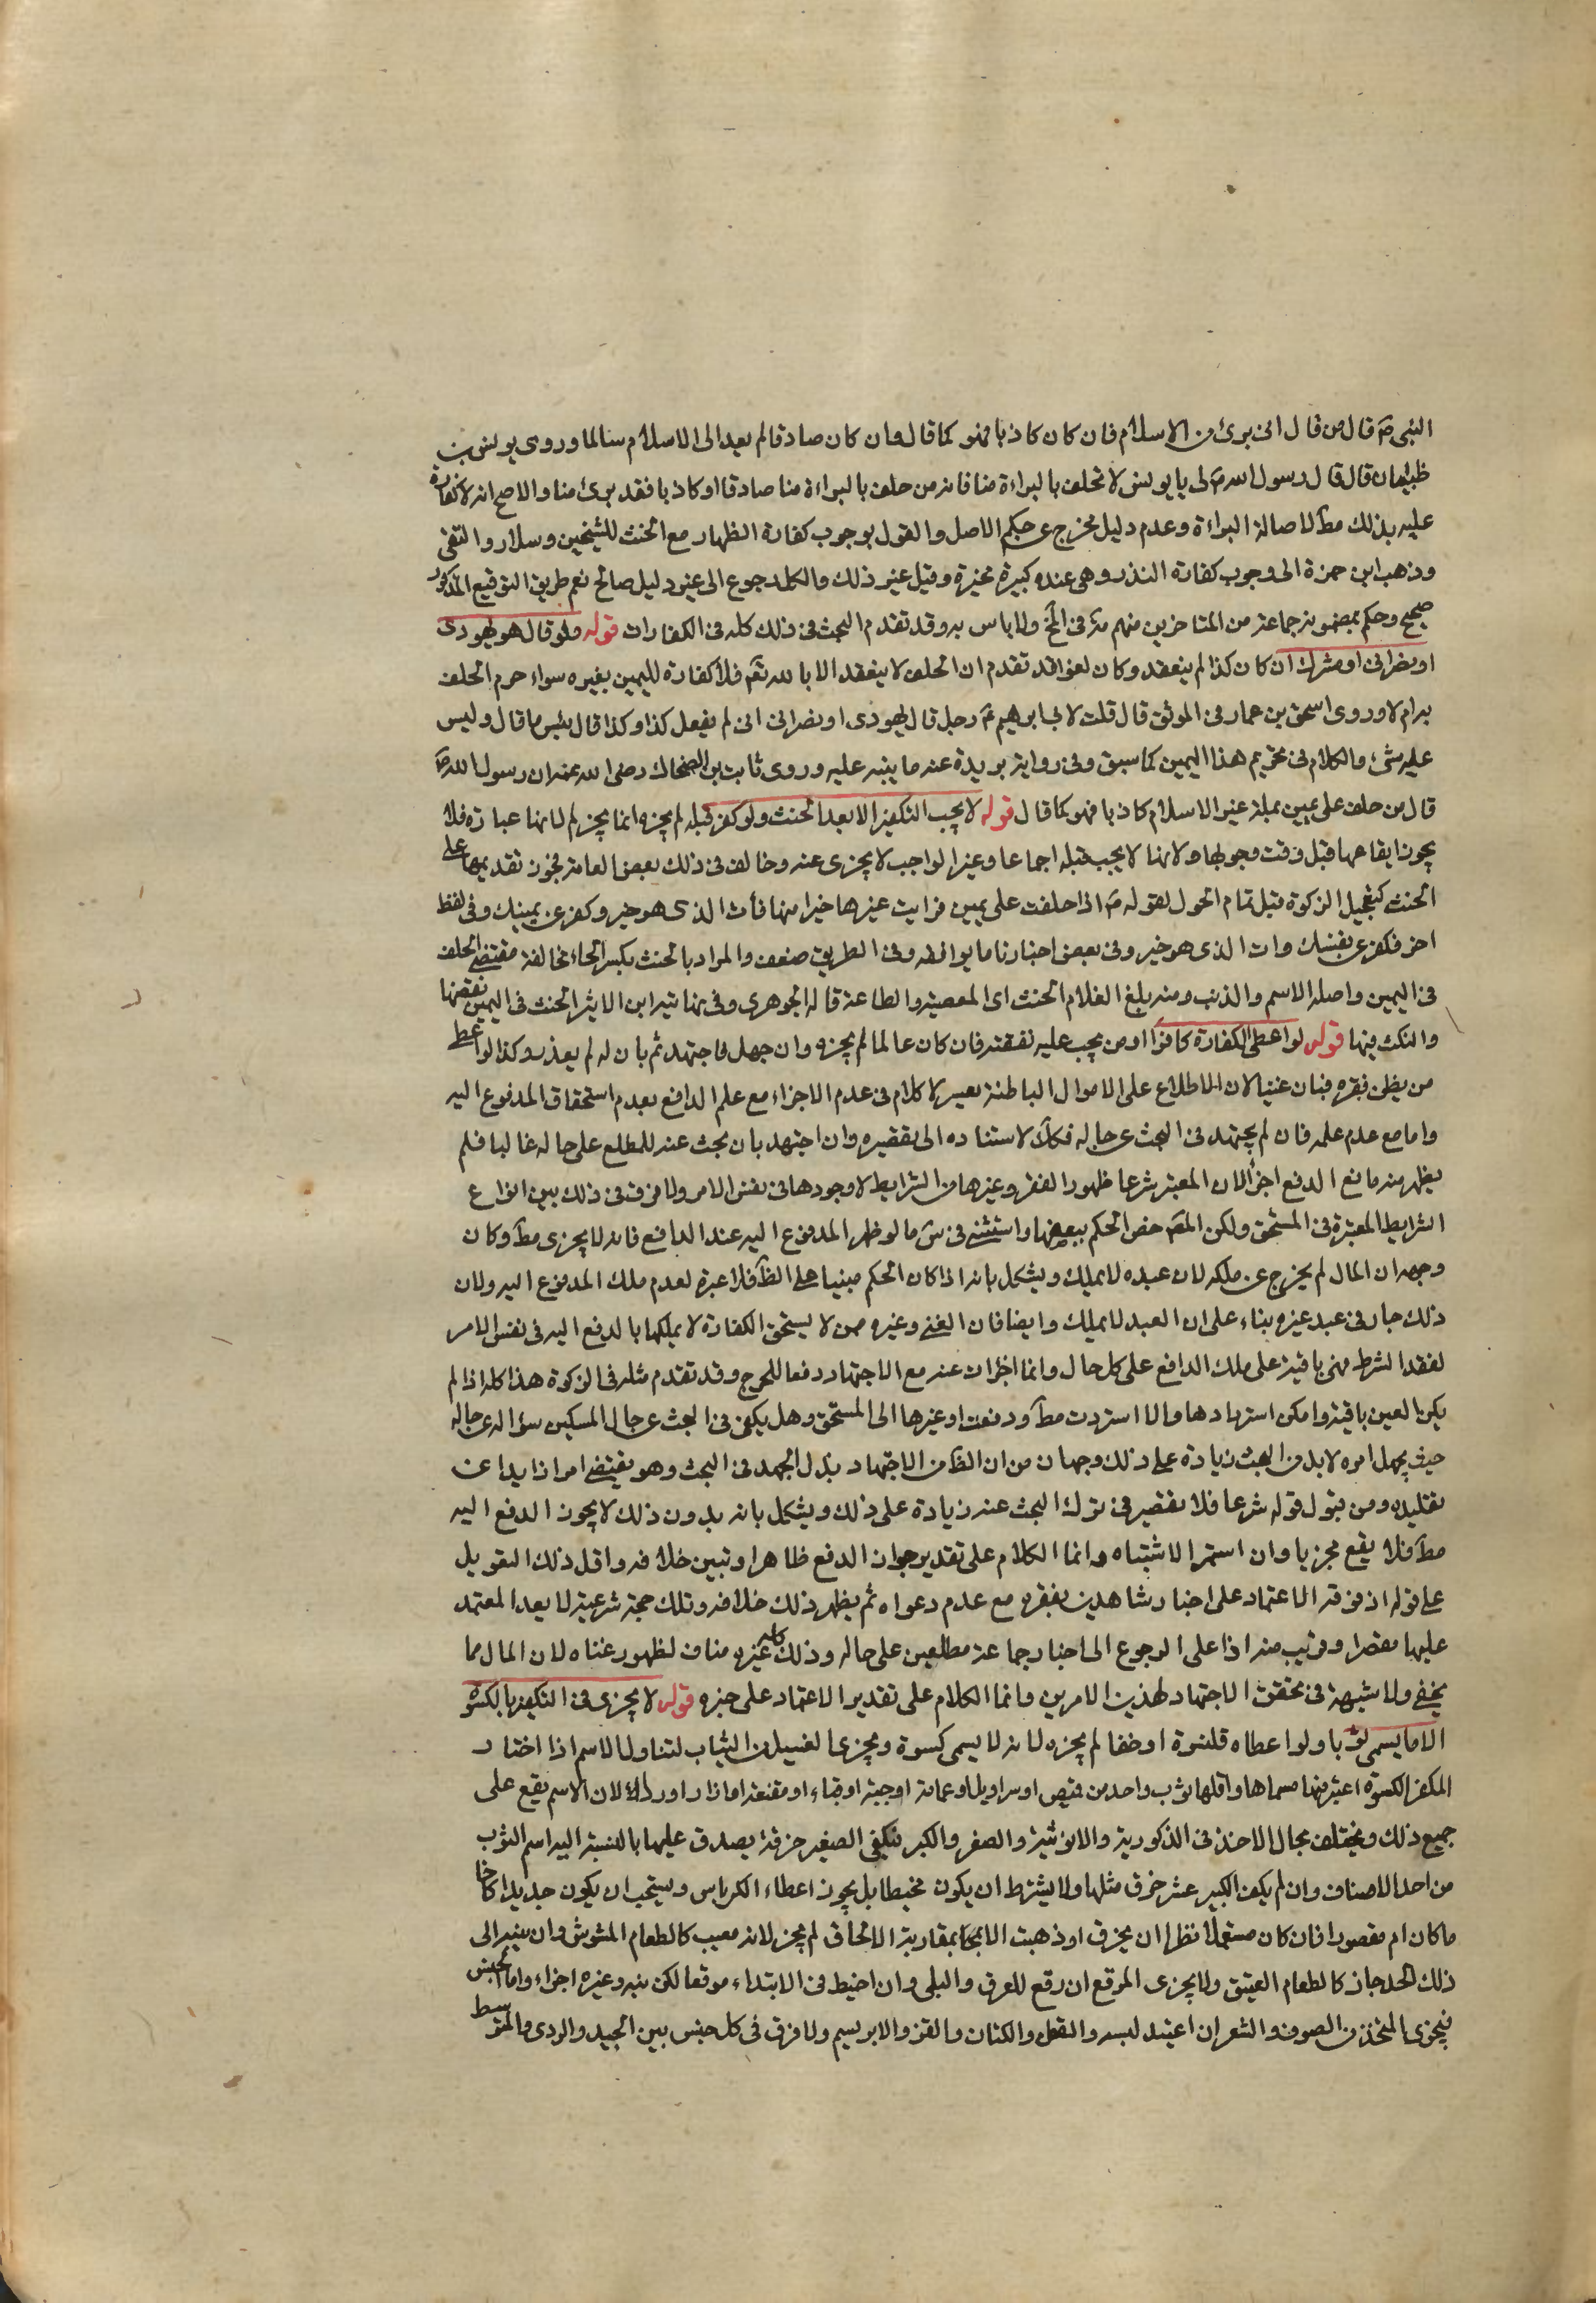 النبى صَ قال من قال انى برئ من الاسلام فان كان كاذبا فهو كما قال وان كان صادقا لم يعد الى الاسلام سالما وروى يونس بن
ظبيان قال قال رسول الله صَ لى يا يونس لا تحلف بالبراءة منا فانه من حلف بالبراءة منا صادقا او كاذبا فقد برئ منا والاصح انه لا كفارة
عليه بذلك مطَ لاصالة البراءة وعدم دليل مخرج عن حكم الاصل والقول بوجوب كفارة الظهار مع الحنث للشيخين وسلار والتقى
وذهب ابن حمزة الى وجوب كفارة النذر وهى عنده كبيرة مخيرة وقيل غير ذلك والكل رجوع الى غير دليل صالح نعم طريق التوقيع المذكور
صحيح وحكم بمضمونه جماعة من المتاخرين منهم مة فى الخ ولا باس به وقد تقدم البحث فى ذلك كله فى الكفارات قوله ولو قال هو يهودى
او نصرانى او مشرك ان كان كذا لم ينعقد وكان لغوا قد تقدم ان الحلف لا ينعقد الا بالله تعَ فلا كفارة لليمين بغيره سواء حرم الحلف
به ام لا وروى اسحق بن عمار فى الموثق قال قلت لابى ابرهيم عَ رجل قال يهودى او نصرانى ان لم يفعل كذا وكذا قال بئس ما قال وليس
عليه شئ والكلام فى تحريم هذا اليمين كما سبق وفى رواية بريدة عنه ما ينبه عليه وروى ثابت بن الضحاك رضى الله عنه ان رسول الله صَ
قال من حلف على يمين بملة غير الاسلام كاذبا فهو كما قال قوله لا يجب التكفير الا بعد الحنث ولو كفر قبله لم يجزه انما يجز لم لانها عبادة فلا
يجوز ايقاعها قبل وقت وجوبها ولانها لا يجب قبله اجماعا وغير الواجب لا يجزى عنه وخالف فى ذلك بعض العامة فجوز تقديمها على
الحنث كتعجيل الزكوة قبل تمام الحول لقوله صَ اذا حلفت على يمين فرايت غيرها خيرا منها فأت الذى هو خير وكفر عن يمينك وفى لفظ
اخر فكفر عن يمينك وات الذى هو خير وفى بعض اخبارنا ما يوافقه وفى الطريق ضعف والمراد بالحنث بكسر الحاء مخالفة مقتضى الحلف
فى اليمين واصله الاسم والذنب ومنه بلغ الغلام الحنث اى المعصية والطاعة قاله الجوهرى وفى نهاية ابن الاثير الحنث فى اليمين نقضها
والنكث فيها قوله لو اعطى الكفارة كافرا او من يجب عليه نفقته فان كان عالما لم يجزه وان جهل فاجتهد ثم بان له لم يعذر وكذا لو اعطى
من يظن فقره فبان غنيا لان الاطلاع على الاموال الباطنة يعسر لا كلام فى عدم الاجزاء مع علم الدافع بعدم استحقاق المدفوع اليه
واما مع عدم علمه فان لم يجتهد فى البحث عن حاله فكذلك لاستناده الى تقصيره وان اجتهد بان بحث عنه للمطلع على حاله غالبا فلم
يظهر منه مانع الدفع اجزأ لان المعتبر شرعا ظهور الفقر وغيرها من الشرايط لا وجودها فى نفس الامر ولا فرق فى ذلك بين انواع
الشرايط المعتبرة فى المستحق ولكن المصَ خص الحكم ببعضها واستثنى فى شَ ما لو ظهر المدفوع اليه عند الدافع فانه لا يجزى مطَ وكان
وجهه ان المال لم يخرج عن ملكه لان عبده لا يملك ويشكل بانه اذا كان الحكم مبنيا على الظَ فلا عبرة لعدم ملك المدفوع اليه ولان
ذلك جار فى عبد غيره بناء على ان العبد لا يملك وايضا فان الغنى وغيره ممن لا يستحق الكفارة لا يملكها بالدفع اليه فى نفس الامر
لفقد الشرط فهى باقية على ملك الدافع على كل حال وانما اجزأت عنه مع الاجتهاد دفعا للحرج وقد تقدم مثله فى الزكوة هذا كله اذا لم
يكن العين باقية وامكن استردادها والا استردت مطَ ودفعت او غيرها الى المستحق وهل يكفى فى البحث عن حال المسكين سؤاله عن حاله
حيث يجهل امره لابد من البحث زيادة على ذلك وجهان من ان الظَ من الاجتهاد بذل الجهد فى البحث وهو يقتضى امرا زايدا عن
تقليده ومن قبول قوله شرعا فلا تقصير فى ترك البحث عنه زيادة على ذلك ويشكل بانه بدون ذلك لا يجوز الدفع اليه
مطَ فلا يقع مجزيا وان استمر الاشتباه وانما الكلام على تقدير جواز الدفع ظاهرا وتبين خلافه واقل ذلك التعويل
على قوله اذ فوقه الاعتماد على اخبار شاهدين بفقره مع عدم دعواه ثم يظهر ذلك خلافه وتلك حجة شرعية لا يعد المعتمد
عليها مقصرا وقريب منه اذا على الرجوع الى اخبار جماعة مطلعين على حاله وذلك كله غيره مناف لظهور غناه لان المال مما
يخفى ولا شبهة فى تحقق الاجتهاد لهذين الامرين وانما الكلام على تقدير الاعتماد على خبره قوله لا يجزى فى التكفير بالكسوة
الا ما يسمى ثوبا ولو اعطاه قلنسوة او خفا لم يجزه لانه لا يسمى كسوة ويجزى الغسيل من الثياب لتناول الاسم اذا اختار
المكفر الكسوة اعتبر منها مسماها واقلها ثوب واحد من قميص او سراويل او عمامة او جبة او قباء او مقنعة او ازار او رداء لان الاسم يقع على
جميع ذلك ويختلف بحال الاخذ فى الذكورية والانوثية والصغر والكبر فتكفى الصغير خرقة يصدق عليها بالنسبة اليه اسم الثوب
من احد الاصناف وان لم يكف الكبير عشر خرق مثلها ولا يشترط ان يكون مخيطا بل يجوز اعطاء الكرباس ويستحب ان يكون جديدا خاما
ما كان ام مقصورا فان كان مستعملا نظر ان يخرق او ذهبت بمقاربة الانمحاق لم يجز لانه معيب كالطعام المشوش وان ينير الى
ذلك الحد جاز كالطعام العتيق ولا يجزى المرقع ان رقع للعرى والبلى وان اخيط فى الابتداء موقعا لكن فيه وغيره اجزاء واما الجنس
فيجزى المتخذ من الصوف والشعر ان اعتيد لبسه والقطن والكتان والقز والابريسم ولا فرق فى كل جنس بين الجيد والردى والمتوسط